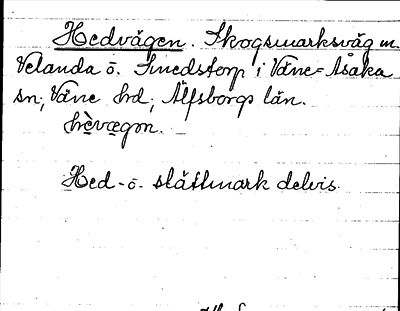 Hedvägen. Skogsmarksväg m.
Velanda ö. Smedstorp i Väne-Åsaka
sn, Väne hrd, Älfsborgs län.
hèvægən.
Hed- ö. slättmark delvis.